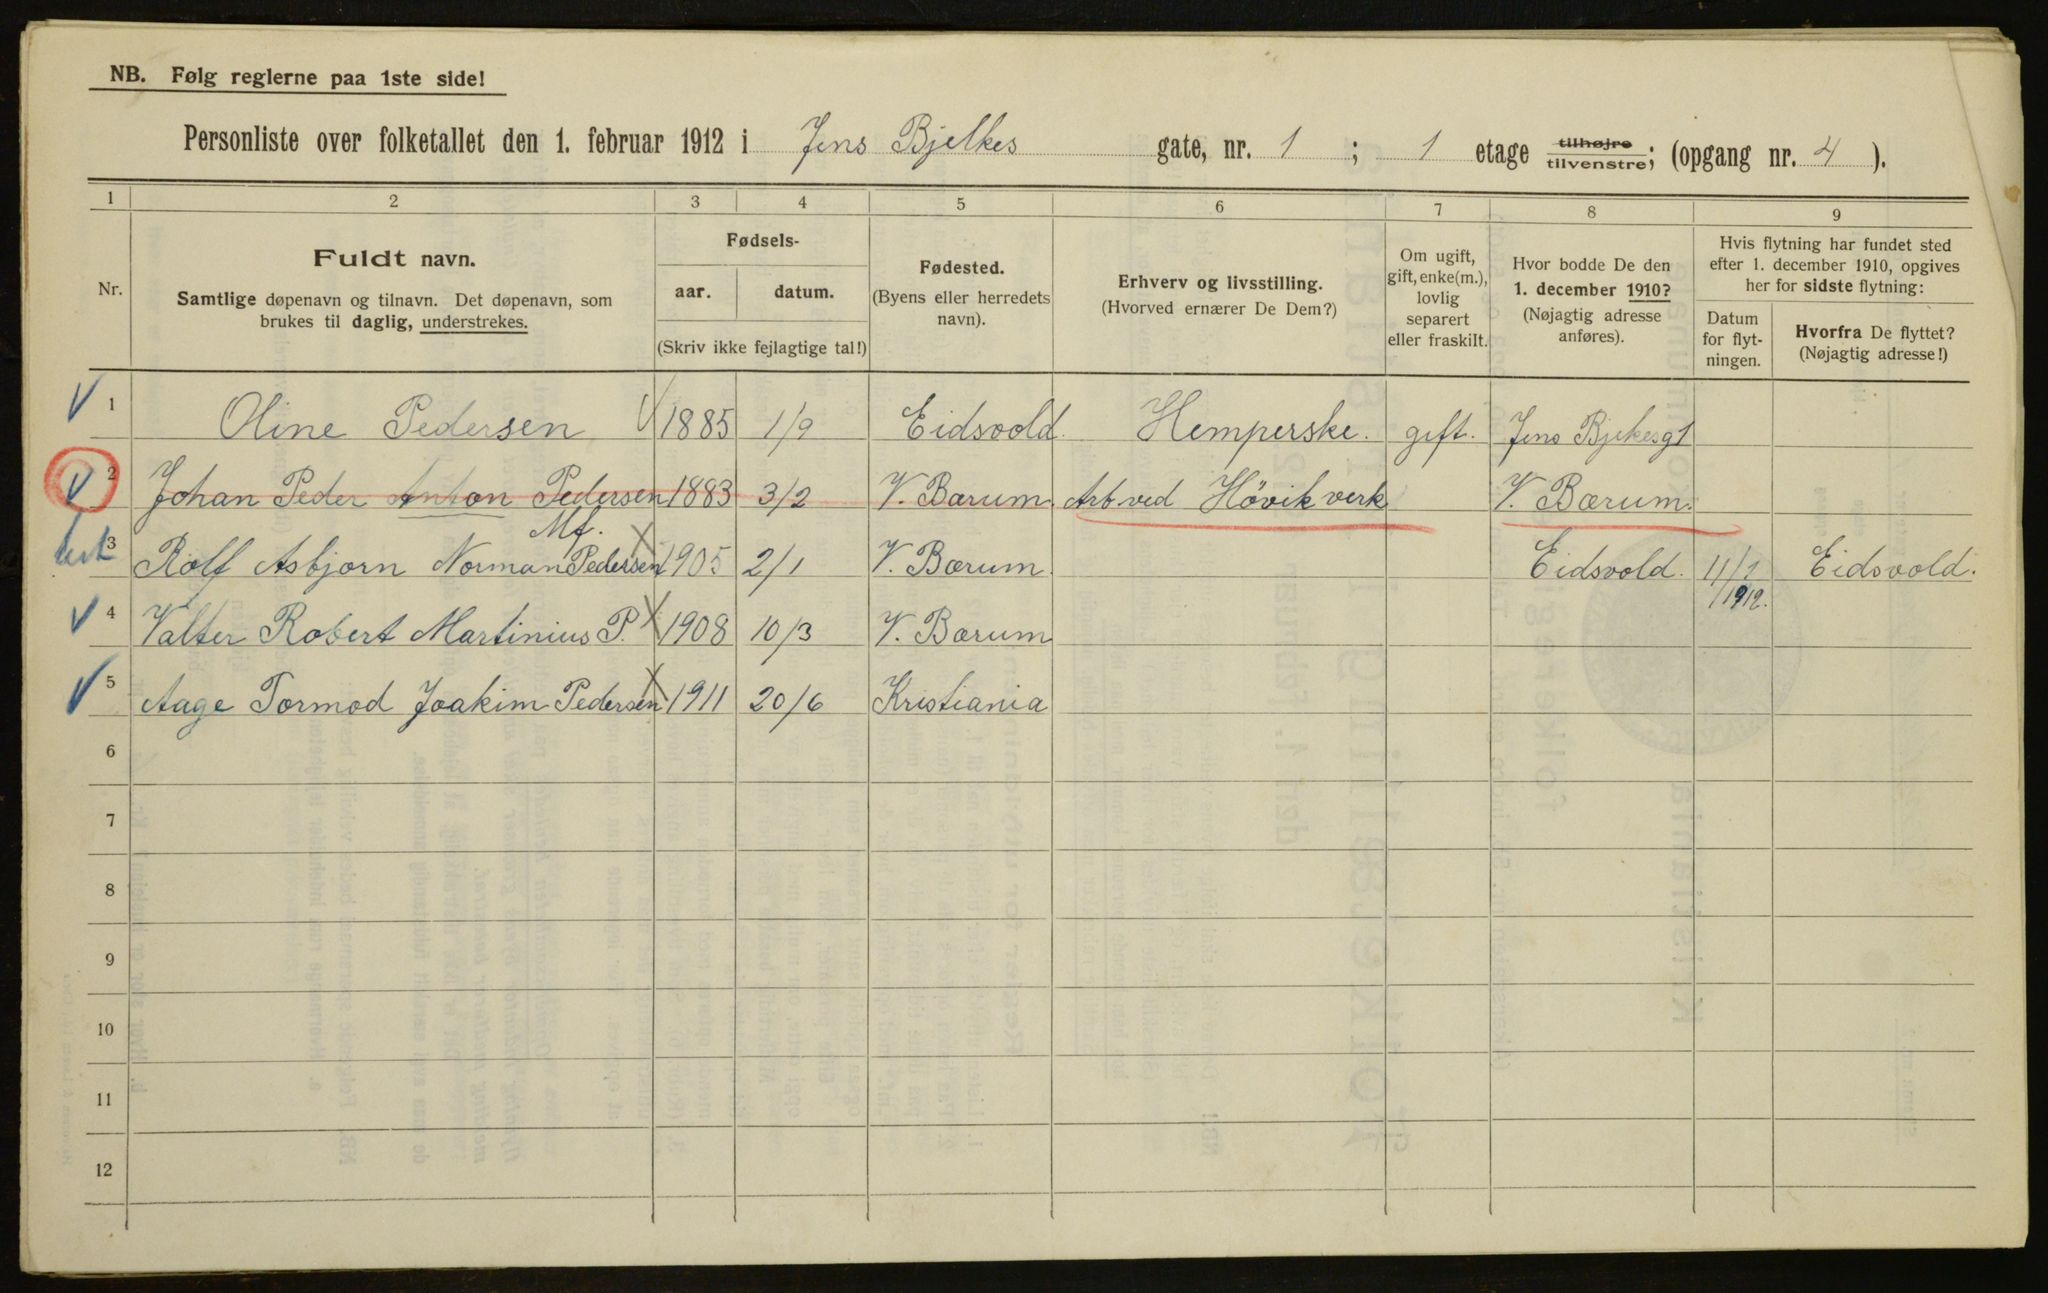 NB. Følg reglerne paa 1ste side!
Personliste over folketallet den 1. februar 1912 i Jens Bjelkes gate, nr. 1 ; 1 etage tilhøjre tilvenstre; (opgang nr. 4 ).
1 2 3 4 5 6 7 8 9
Nr.
Fuldt navn.
Samtlige døpenavn og tilnavn. Det døpenavn, som
brukes til daglig, understrekes.
Fødsels-
aar. datum.
(Skriv ikke fejlagtige tal!)
Fødested.
(Byens eller herredets
navn).
Erhverv og livsstilling.
(Hvorved ernærer De Dem?)
Om ugift,
gift, enke(m.),
lovlig
separert
eller fraskilt.
Hvor bodde De den
1. december 1910?
(Nøjagtig adresse
anføres).
Hvis flytning har fundet sted
efter 1. december 1910, opgives
her for sidste flytning:
Datum
for flyt-
ningen.
Hvorfra De flyttet?
(Nøjagtig adresse!)
1 Oline Pedersen 1885 1/9 Eidsvold. Hemperske. gift. Jens Bjelkesg 1
2 Johan Peder Anton Pedersen 1883 3/2 V. Bærum. Arb. ved Høvik verk V. Bærum.
Mf.
3 Rolf Asbjørn Norman Pedersen 1905 2/1 V. Bærum. Eidsvold. 11/1 1912. Eidsvold.
4 Valter Robert Martinius P. 1908 10/3 V. Bærum
5 Aage Tormod Joakim Pedersen 1911 20/6 Kristiania
6
7
8
9
10
11
12